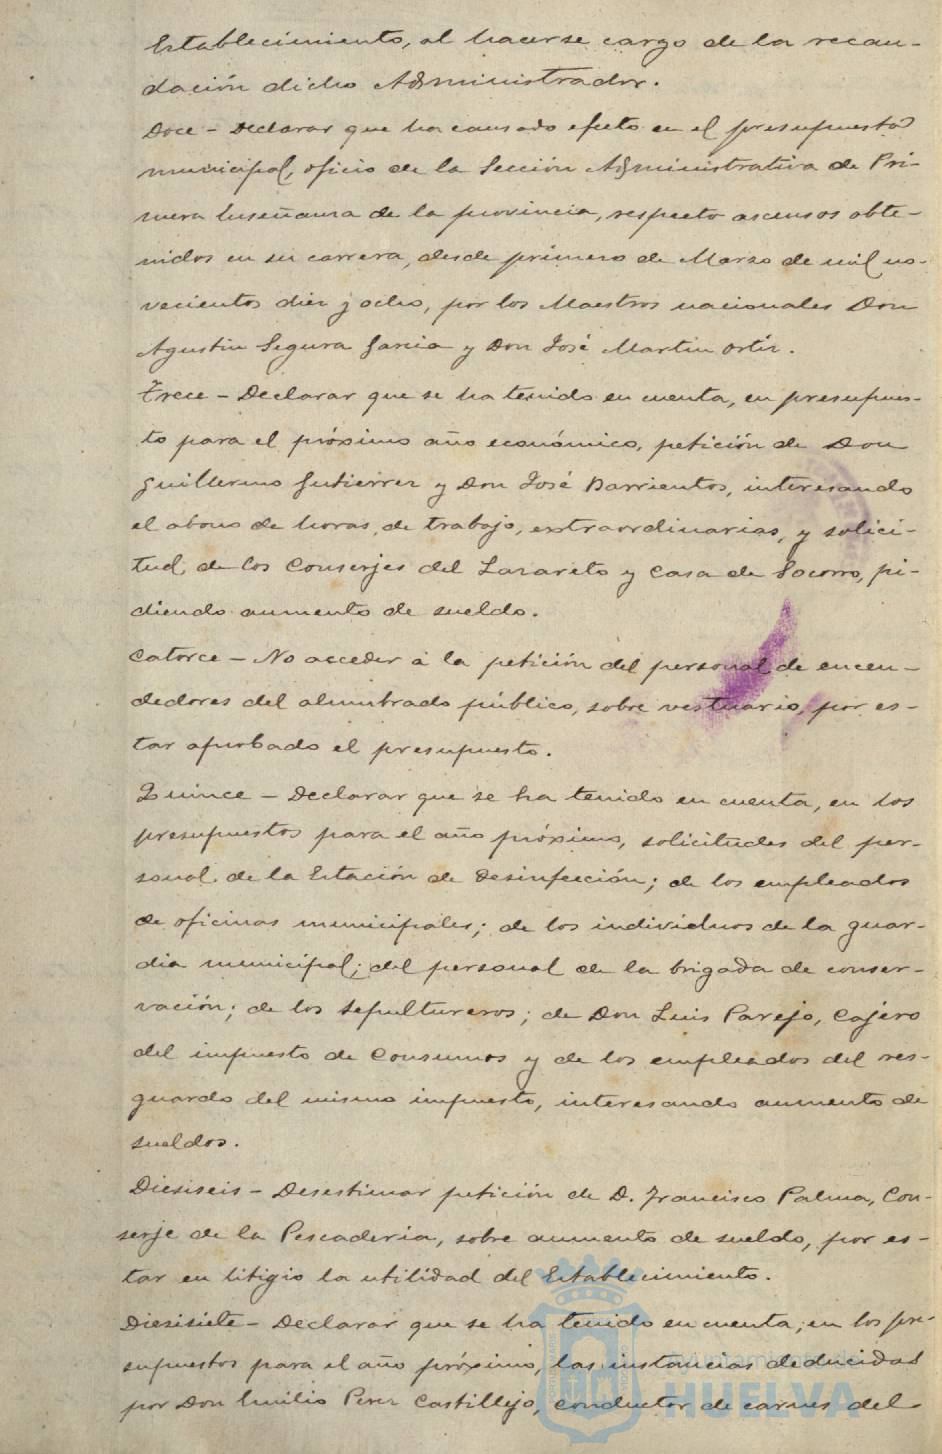 Establecimiento, al hacerse cargo de la recau-
dación dicho Administrador.
Doce - Declarar que ha causado efecto en el presupuesto
municipal, oficio de la Sección Administrativa de Pri-
mera Enseñanza de la provincia, respecto ascensos obte-
nidos en su carrera, desde primero de Marzo de mil no-
vecientos diez y ocho, por los Maestros nacionales Don
Agustin Segura Garcia y Don José Martin Ortiz.
Trece - Declarar que se ha tenido en cuenta, en presupues-
to para el próximo año económico, petición de Don
Guillermo Gutierrez y Don José Barrientos, interesando
el abono de horas de trabajo, extraordinarias, y solici-
tud de los Conserjes del Lazareto y Casa de Socorro, pi-
diendo aumento de sueldo.
Catorce - No acceder á la petición del personal de encen-
dedores del alumbrado público, sobre vestuario, por es-
tar aprobado el presupuesto.
Quince - Declarar que se ha tenido en cuenta, en los
presupuestos para el año próximo, solicitudes del per-
sonal de la Estación de Desinfección; de los empleados
de oficinas municipales; de los individuos de la guar-
dia municipal; del personal de la brigada de conser-
vación; de los sepultureros; de Don Luis Parejo, Cajero
del impuesto de Consumos y de los empleados del res-
guardo del mismo impuesto, interesando aumento de
sueldos.
Diesiseis - Desestimar petición de D. Francisco Palma, Con-
serje de la Pescaderia, sobre aumento de sueldo, por es-
tar en litigio la utilidad del Establecimiento.
Diesisiete - Declarar que se ha tenido en cuenta, en los pre-
supuestos para el año próximo, las instancias deducidas
por Don Emilio Perez Castillejo, conductor de carnes del
Ayuntamiento de
HUELVA